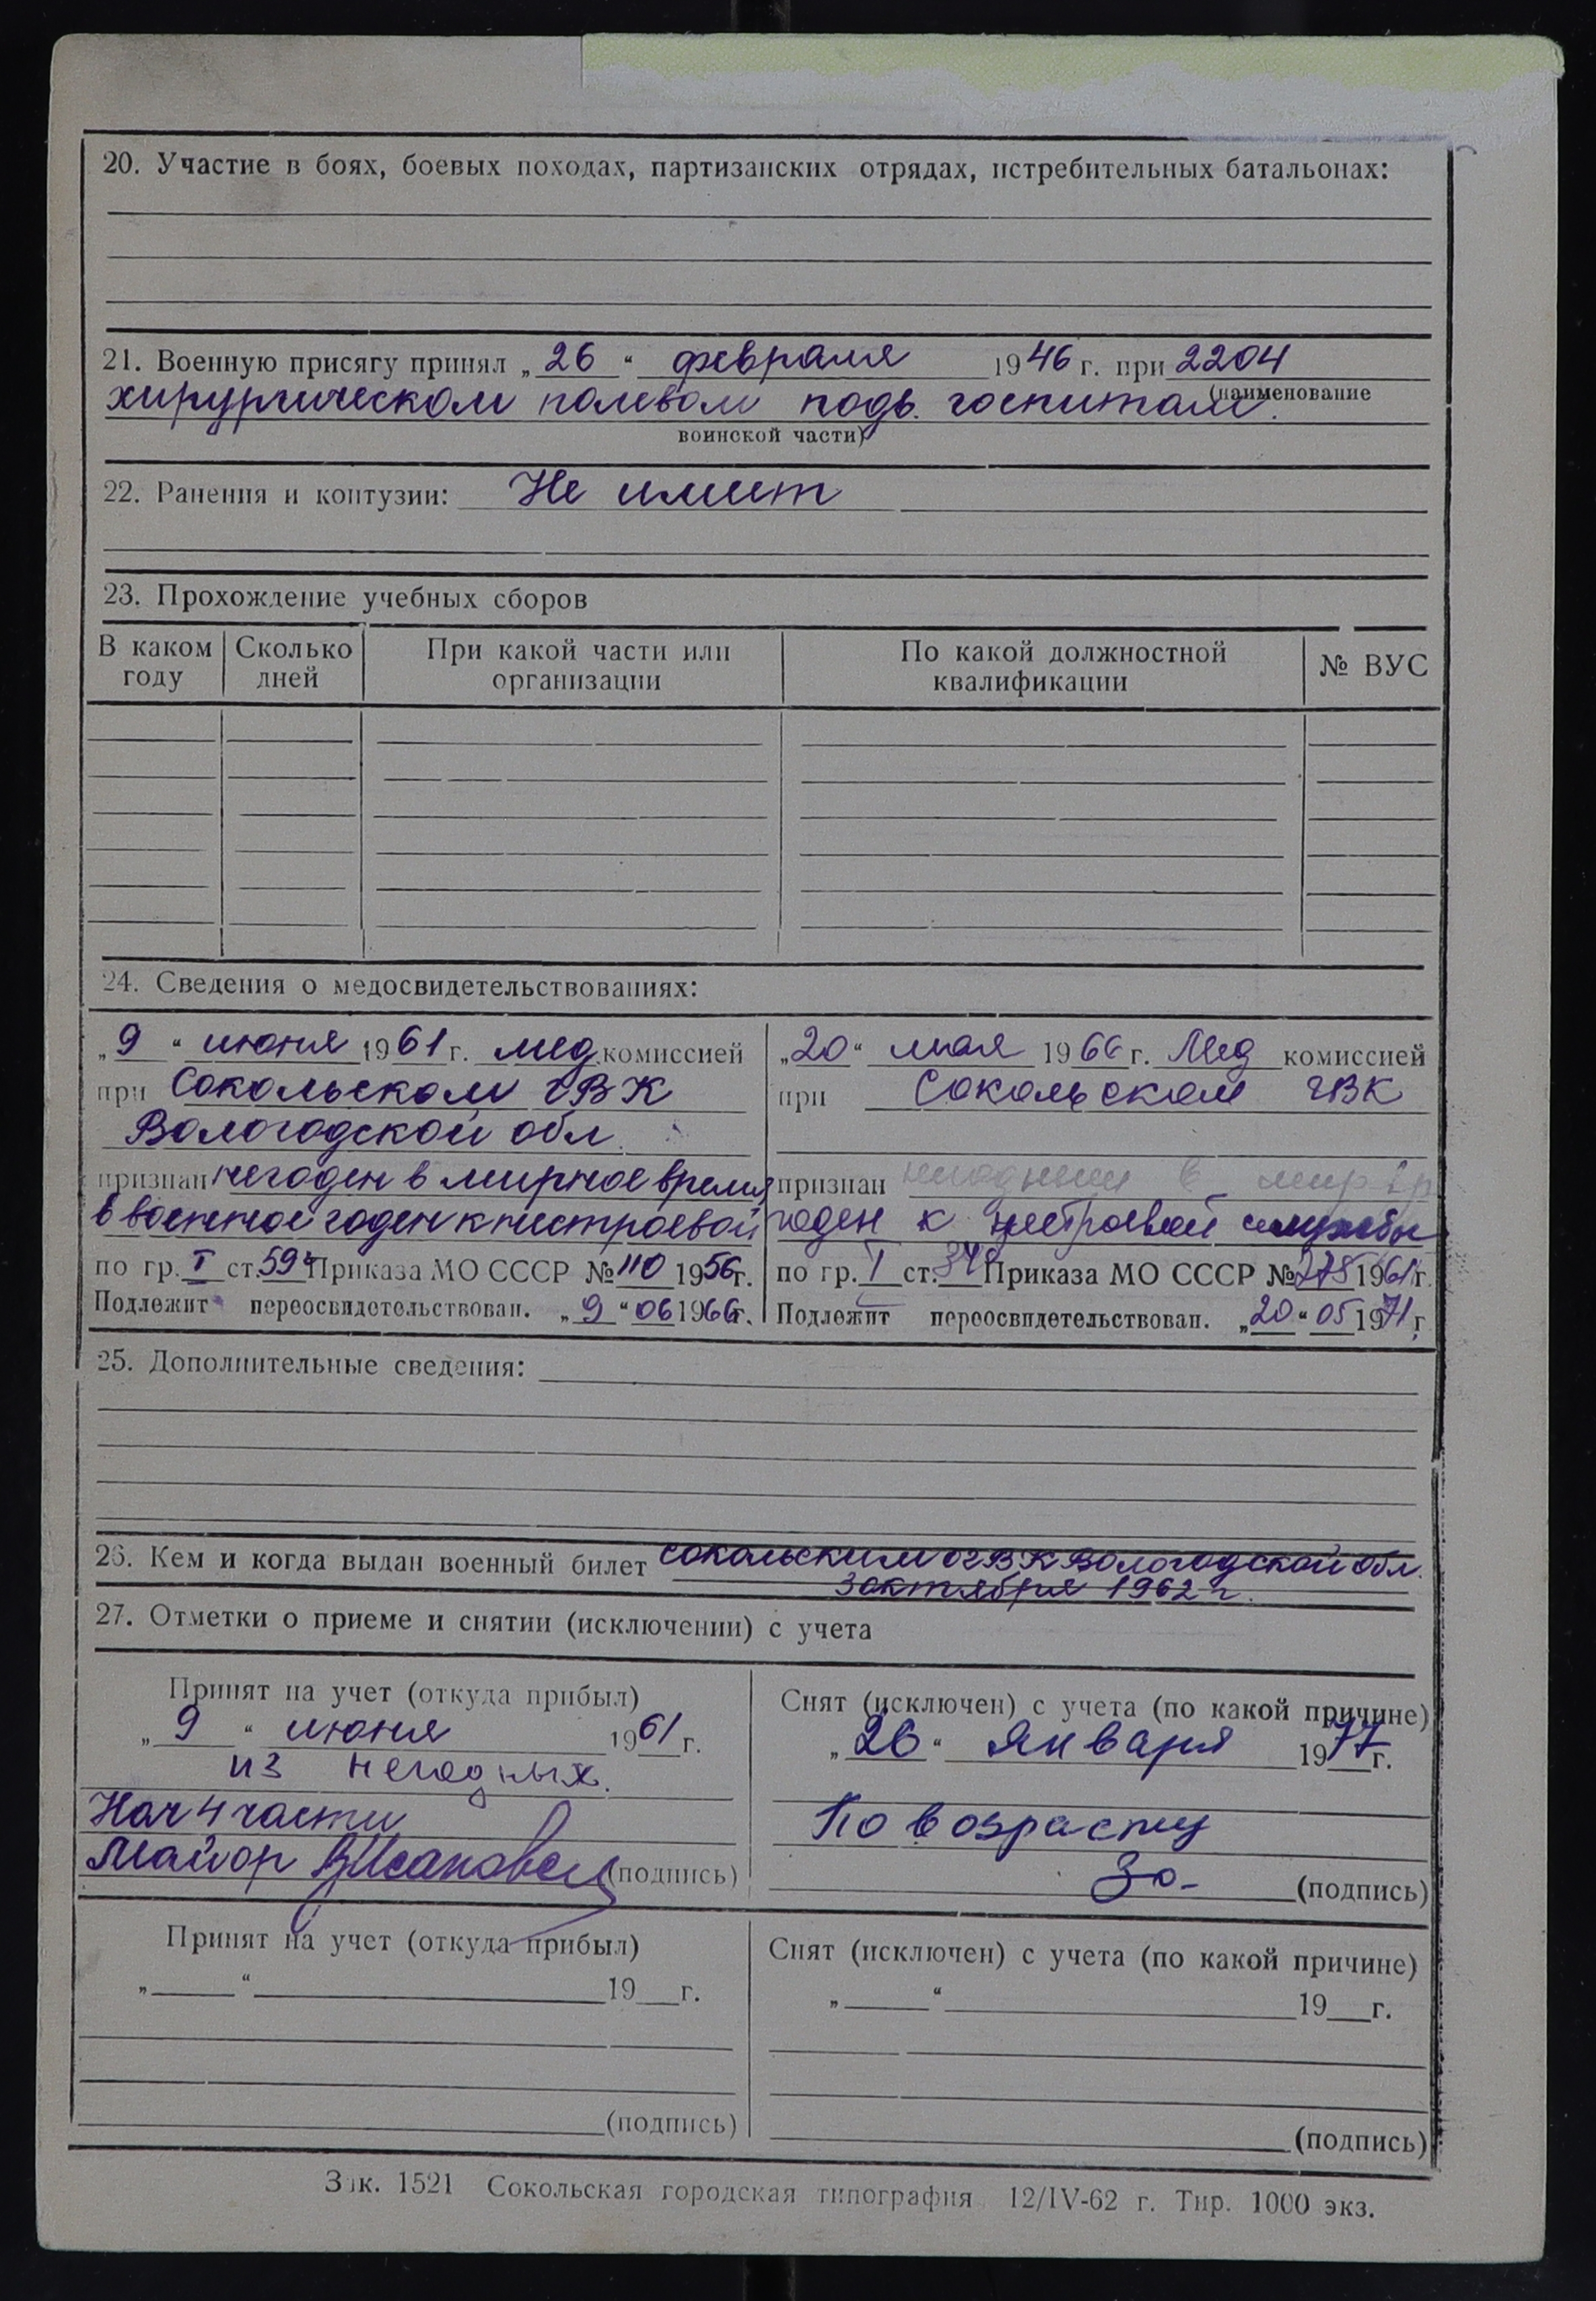 20. Участие в боях, боевых походах, партизанских отрядах, истребительных батальонах:
21. Военную присягу принял „26“ февраля 1946 г. при 2204
(наименование
хирургическом полевом подв. госпитале.
воинской части)
22. Ранения и контузии: Не имеет
23. Прохождение учебных сборов
В каком году Сколько дней При какой части или организации По какой должностной квалификации № ВУС
24. Сведения о медосвидетельствованиях:
„9“ июня 1961 г. мед. комиссией
при Сокольском ГВК
Вологодской обл.
признан негоден в мирное время
в военное годен к нестроевой
по гр. I ст. 59 Приказа МО СССР № 110 1956 г.
Подлежит переосвидетельствован. „9“ 06 1966 г.
„20“ мая 1966 г. Мед комиссией
при Сокольском ГВК
признан негодным в мир вр
годен к нестроевой службы
по гр. I ст. Приказа МО СССР № 275 1961 г.
Подлежит переосвидетельствован. „20“ 05 1971 г.
25. Дополнительные сведения:
26. Кем и когда выдан военный билет Сокольским ОГВК Вологодской обл.
3 октября 1962 г.
27. Отметки о приеме и снятии (исключении) с учета
Принят на учет (откуда прибыл)
„9“ июня 1961 г.
из негодных.
Нач 4 части
Майор (подпись)
Снят (исключен) с учета (по какой причине)
„26“ января 1977 г.
По возрасту
(подпись)
Принят на учет (откуда прибыл)
„ “ 19 г.
(подпись)
Снят (исключен) с учета (по какой причине)
„ “ 19 г.
(подпись)
Зак. 1521 Сокольская городская типография 12/IV-62 г. Тир. 1000 экз.